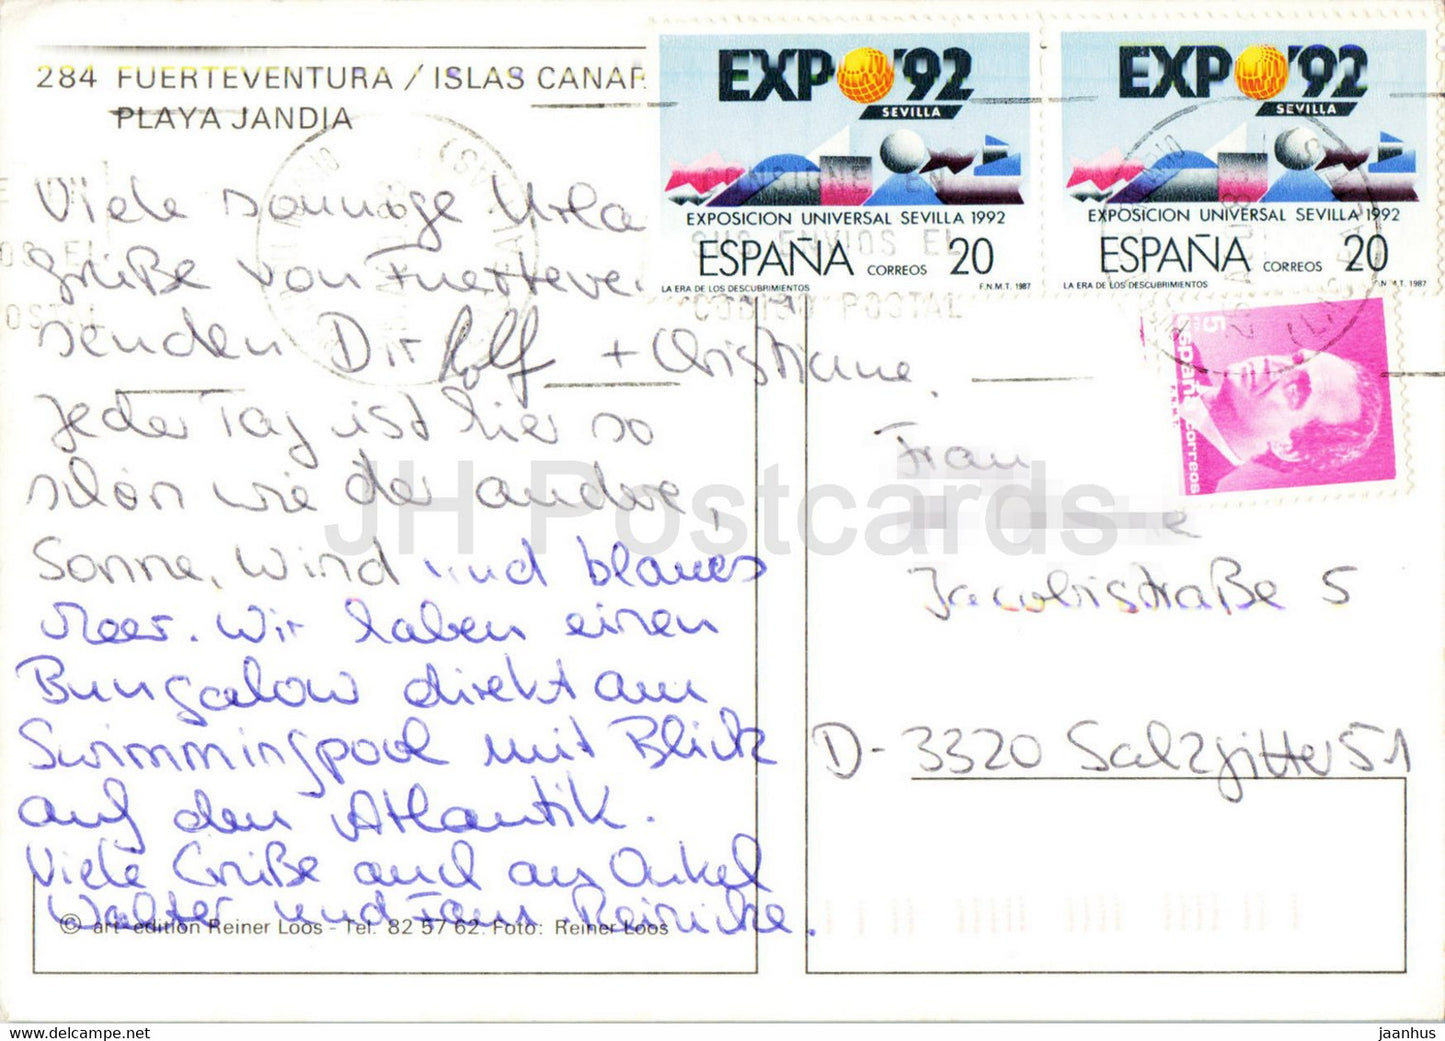 284 FUERTEVENTURA / ISLAS CANAR
PLAYA JANDIA
Viele sonnige Urla
Grüße von Fuerteve
senden Dir Rolf + Christiane.
Jeder Tag ist hier so
schön wie der andere,
Sonne, Wind und blaues
Meer. Wir haben einen
Bungalow direkt am
Swimmingpool mit Blick
auf den Atlantik.
Viele Grüße auch an Onkel
Walter und Fam. Reinicke.
© art-edition Reiner Loos - Tel. 82 57 62. Foto: Reiner Loos
EXPO '92
SEVILLA
EXPOSICION UNIVERSAL SEVILLA 1992
ESPAÑA CORREOS 20
LA ERA DE LOS DESCUBRIMIENTOS F.N.M.T. 1987
EXPO '92
SEVILLA
EXPOSICION UNIVERSAL SEVILLA 1992
ESPAÑA CORREOS 20
LA ERA DE LOS DESCUBRIMIENTOS F.N.M.T. 1987
CONSIGNE EN
SUS ENVIOS EL
CODIGO POSTAL
5
España correos
Frau
Jacobistraße 5
D-3320 Salzgitter 51
JH Postcards
www.delcampe.net
jaanhus